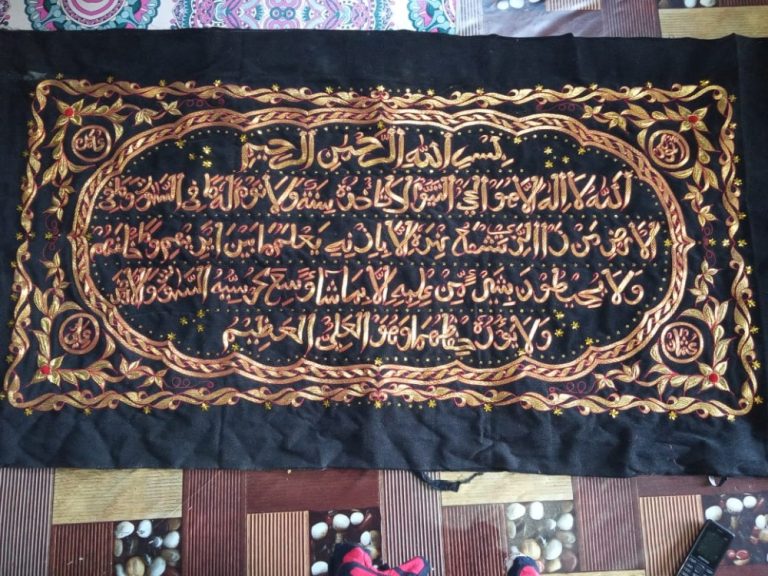 بسم الله الرحمن الرحيم
الله لا اله الا هو الحي القيوم لا تاخذه سنة ولا نوم له ما في السموت وما في
الارض من ذا الذي يشفع عنده الا باذنه يعلم ما بين ايديهم وما خلفهم
ولا يحيطون بشئ من علمه الا بما شا وسع كرسيه السموت والارض
ولا يؤده حفظهما وهو العلي العظيم